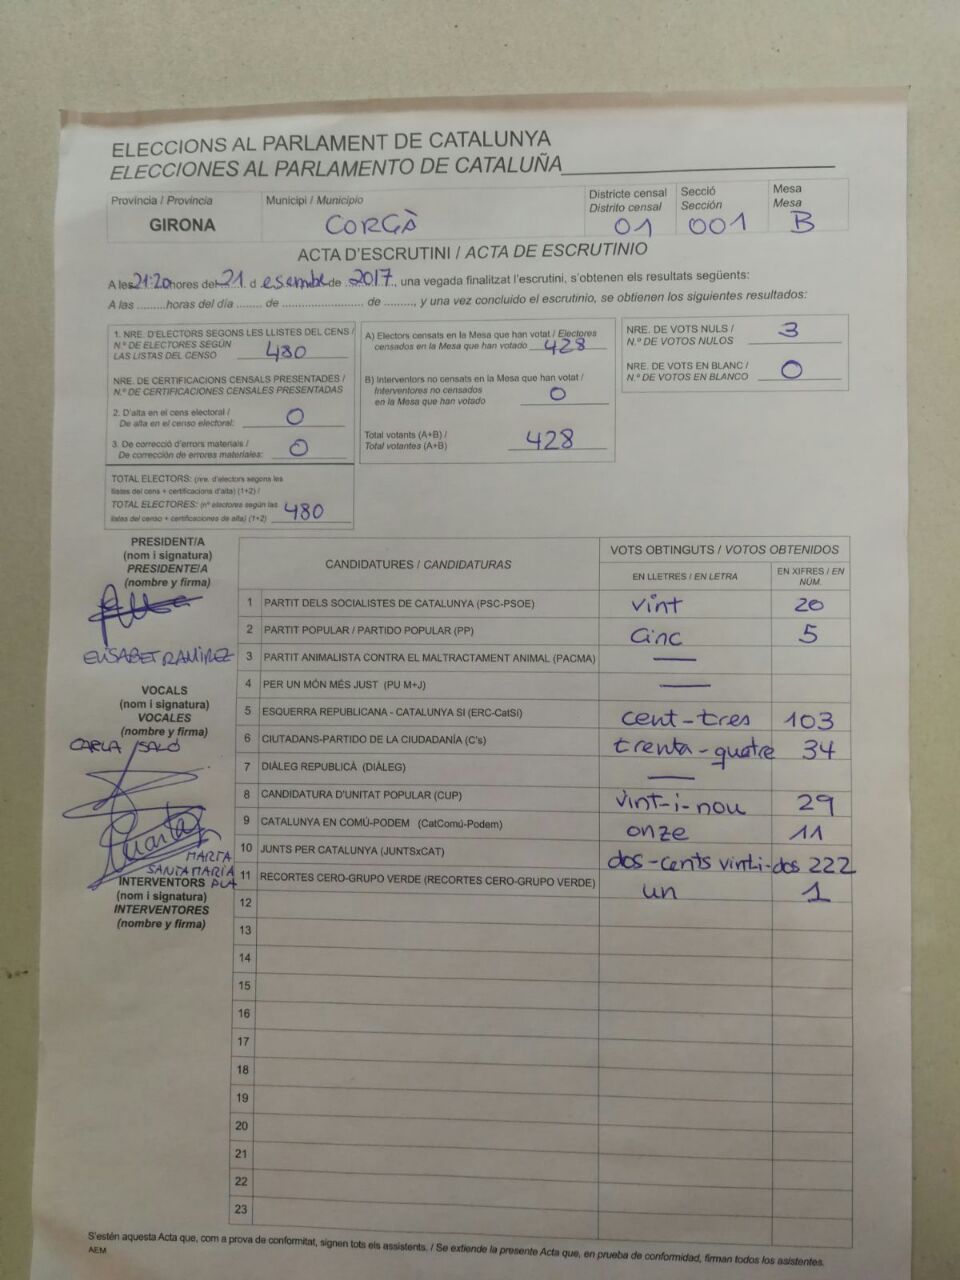 ELECCIONS AL PARLAMENT DE CATALUNYA
ELECCIONES AL PARLAMENTO DE CATALUÑA
Província / Provincia
GIRONA
Municipi / Municipio
CORÇÀ
Districte censal
Distrito censal
01
Secció
Sección
001
Mesa
Mesa
B
ACTA D'ESCRUTINI / ACTA DE ESCRUTINIO
A les 21:20 hores del 21 d esembre de 2017, una vegada finalitzat l'escrutini, s'obtenen els resultats següents:
A las .........horas del día ........ de .............................. de ........., y una vez concluido el escrutinio, se obtienen los siguientes resultados:
1. NRE. D'ELECTORS SEGONS LES LLISTES DEL CENS /
N.º DE ELECTORES SEGÚN
LAS LISTAS DEL CENSO 480
NRE. DE CERTIFICACIONS CENSALS PRESENTADES /
N.º DE CERTIFICACIONES CENSALES PRESENTADAS
2. D'alta en el cens electoral /
De alta en el censo electoral: 0
3. De correcció d'errors materials /
De corrección de errores materiales: 0
TOTAL ELECTORS: (nre. d'electors segons les
llistes del cens + certificacions d'alta) (1+2) /
TOTAL ELECTORES: (nº electores según las
listas del censo + certificaciones de alta) (1+2) 480
A) Electors censats en la Mesa que han votat / Electores
censados en la Mesa que han votado 428
B) Interventors no censats en la Mesa que han votat /
Interventores no censados
en la Mesa que han votado 0
Total votants (A+B) /
Total votantes (A+B) 428
NRE. DE VOTS NULS /
N.º DE VOTOS NULOS 3
NRE. DE VOTS EN BLANC /
N.º DE VOTOS EN BLANCO 0
PRESIDENT/A
(nom i signatura)
PRESIDENTE/A
(nombre y firma)
ELISABET RAMÍREZ
VOCALS
(nom i signatura)
VOCALES
(nombre y firma)
CARLA SALÓ
Marta
MARTA
SANTAMARIA
PLA
INTERVENTORS
(nom i signatura)
INTERVENTORES
(nombre y firma)
CANDIDATURES / CANDIDATURAS
VOTS OBTINGUTS / VOTOS OBTENIDOS
EN LLETRES / EN LETRA
EN XIFRES / EN
NÚM.
1 PARTIT DELS SOCIALISTES DE CATALUNYA (PSC-PSOE) vint 20
2 PARTIT POPULAR / PARTIDO POPULAR (PP) Cinc 5
3 PARTIT ANIMALISTA CONTRA EL MALTRACTAMENT ANIMAL (PACMA) —
4 PER UN MÓN MÉS JUST (PU M+J) —
5 ESQUERRA REPUBLICANA - CATALUNYA SI (ERC-CatSI) cent-tres 103
6 CIUTADANS-PARTIDO DE LA CIUDADANÍA (C's) trenta-quatre 34
7 DIÀLEG REPUBLICÀ (DIÀLEG) —
8 CANDIDATURA D'UNITAT POPULAR (CUP) vint-i-nou 29
9 CATALUNYA EN COMÚ-PODEM (CatComú-Podem) onze 11
10 JUNTS PER CATALUNYA (JUNTSxCAT) dos-cents vinti-dos 222
11 RECORTES CERO-GRUPO VERDE (RECORTES CERO-GRUPO VERDE) un 1
12
13
14
15
16
17
18
19
20
21
22
23
S'estén aquesta Acta que, com a prova de conformitat, signen tots els assistents. / Se extiende la presente Acta que, en prueba de conformidad, firman todos los asistentes.
AEM